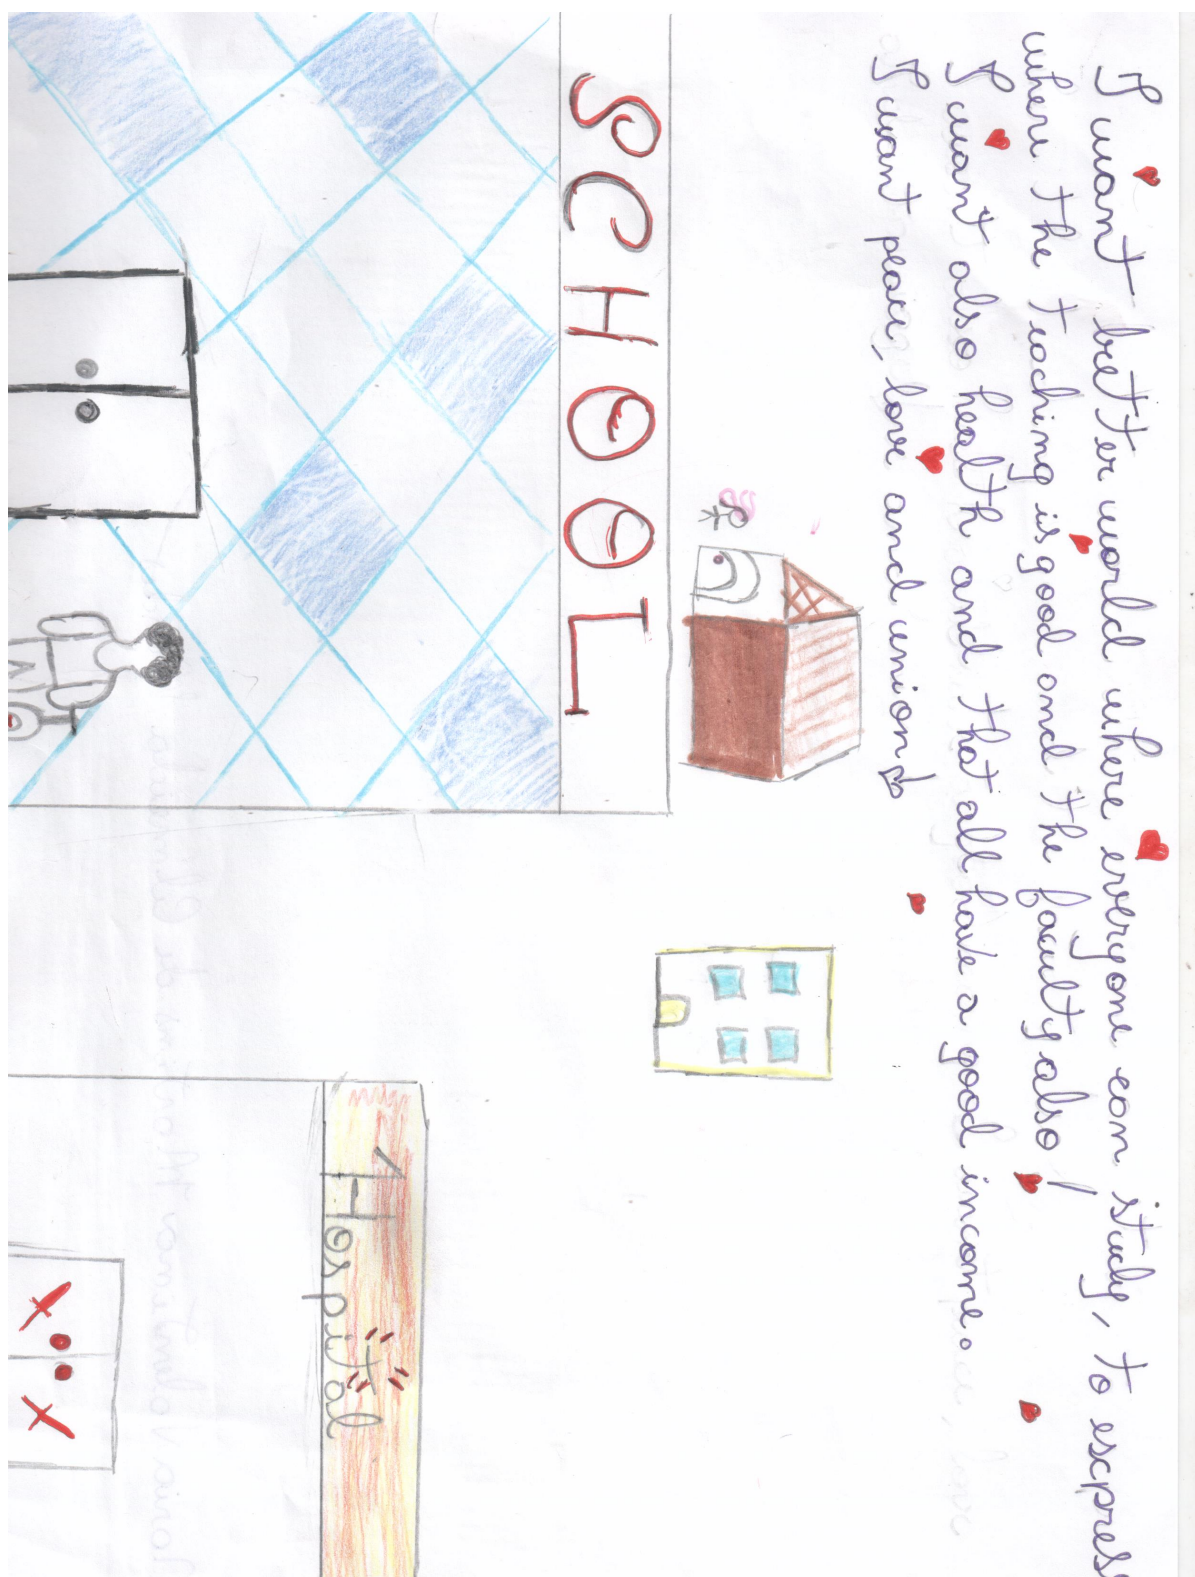 I want better world where everyone can study, to escpres
where the teaching is good and the faculty also!
I want also health and that all have a good income.
I want peace, love and union
SCHOOL
Hospital